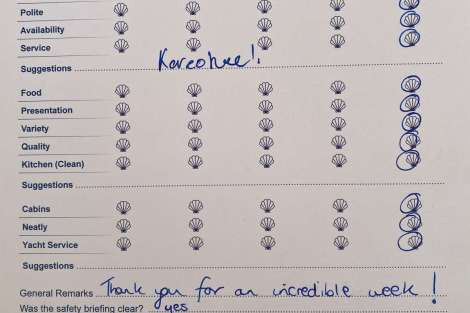 Polite
Availability
Service
Suggestions Kareohee!
Food
Presentation
Variety
Quality
Kitchen (Clean)
Suggestions
Cabins
Neatly
Yacht Service
Suggestions
General Remarks Thank you for an incredible week!
Was the safety briefing clear? yes